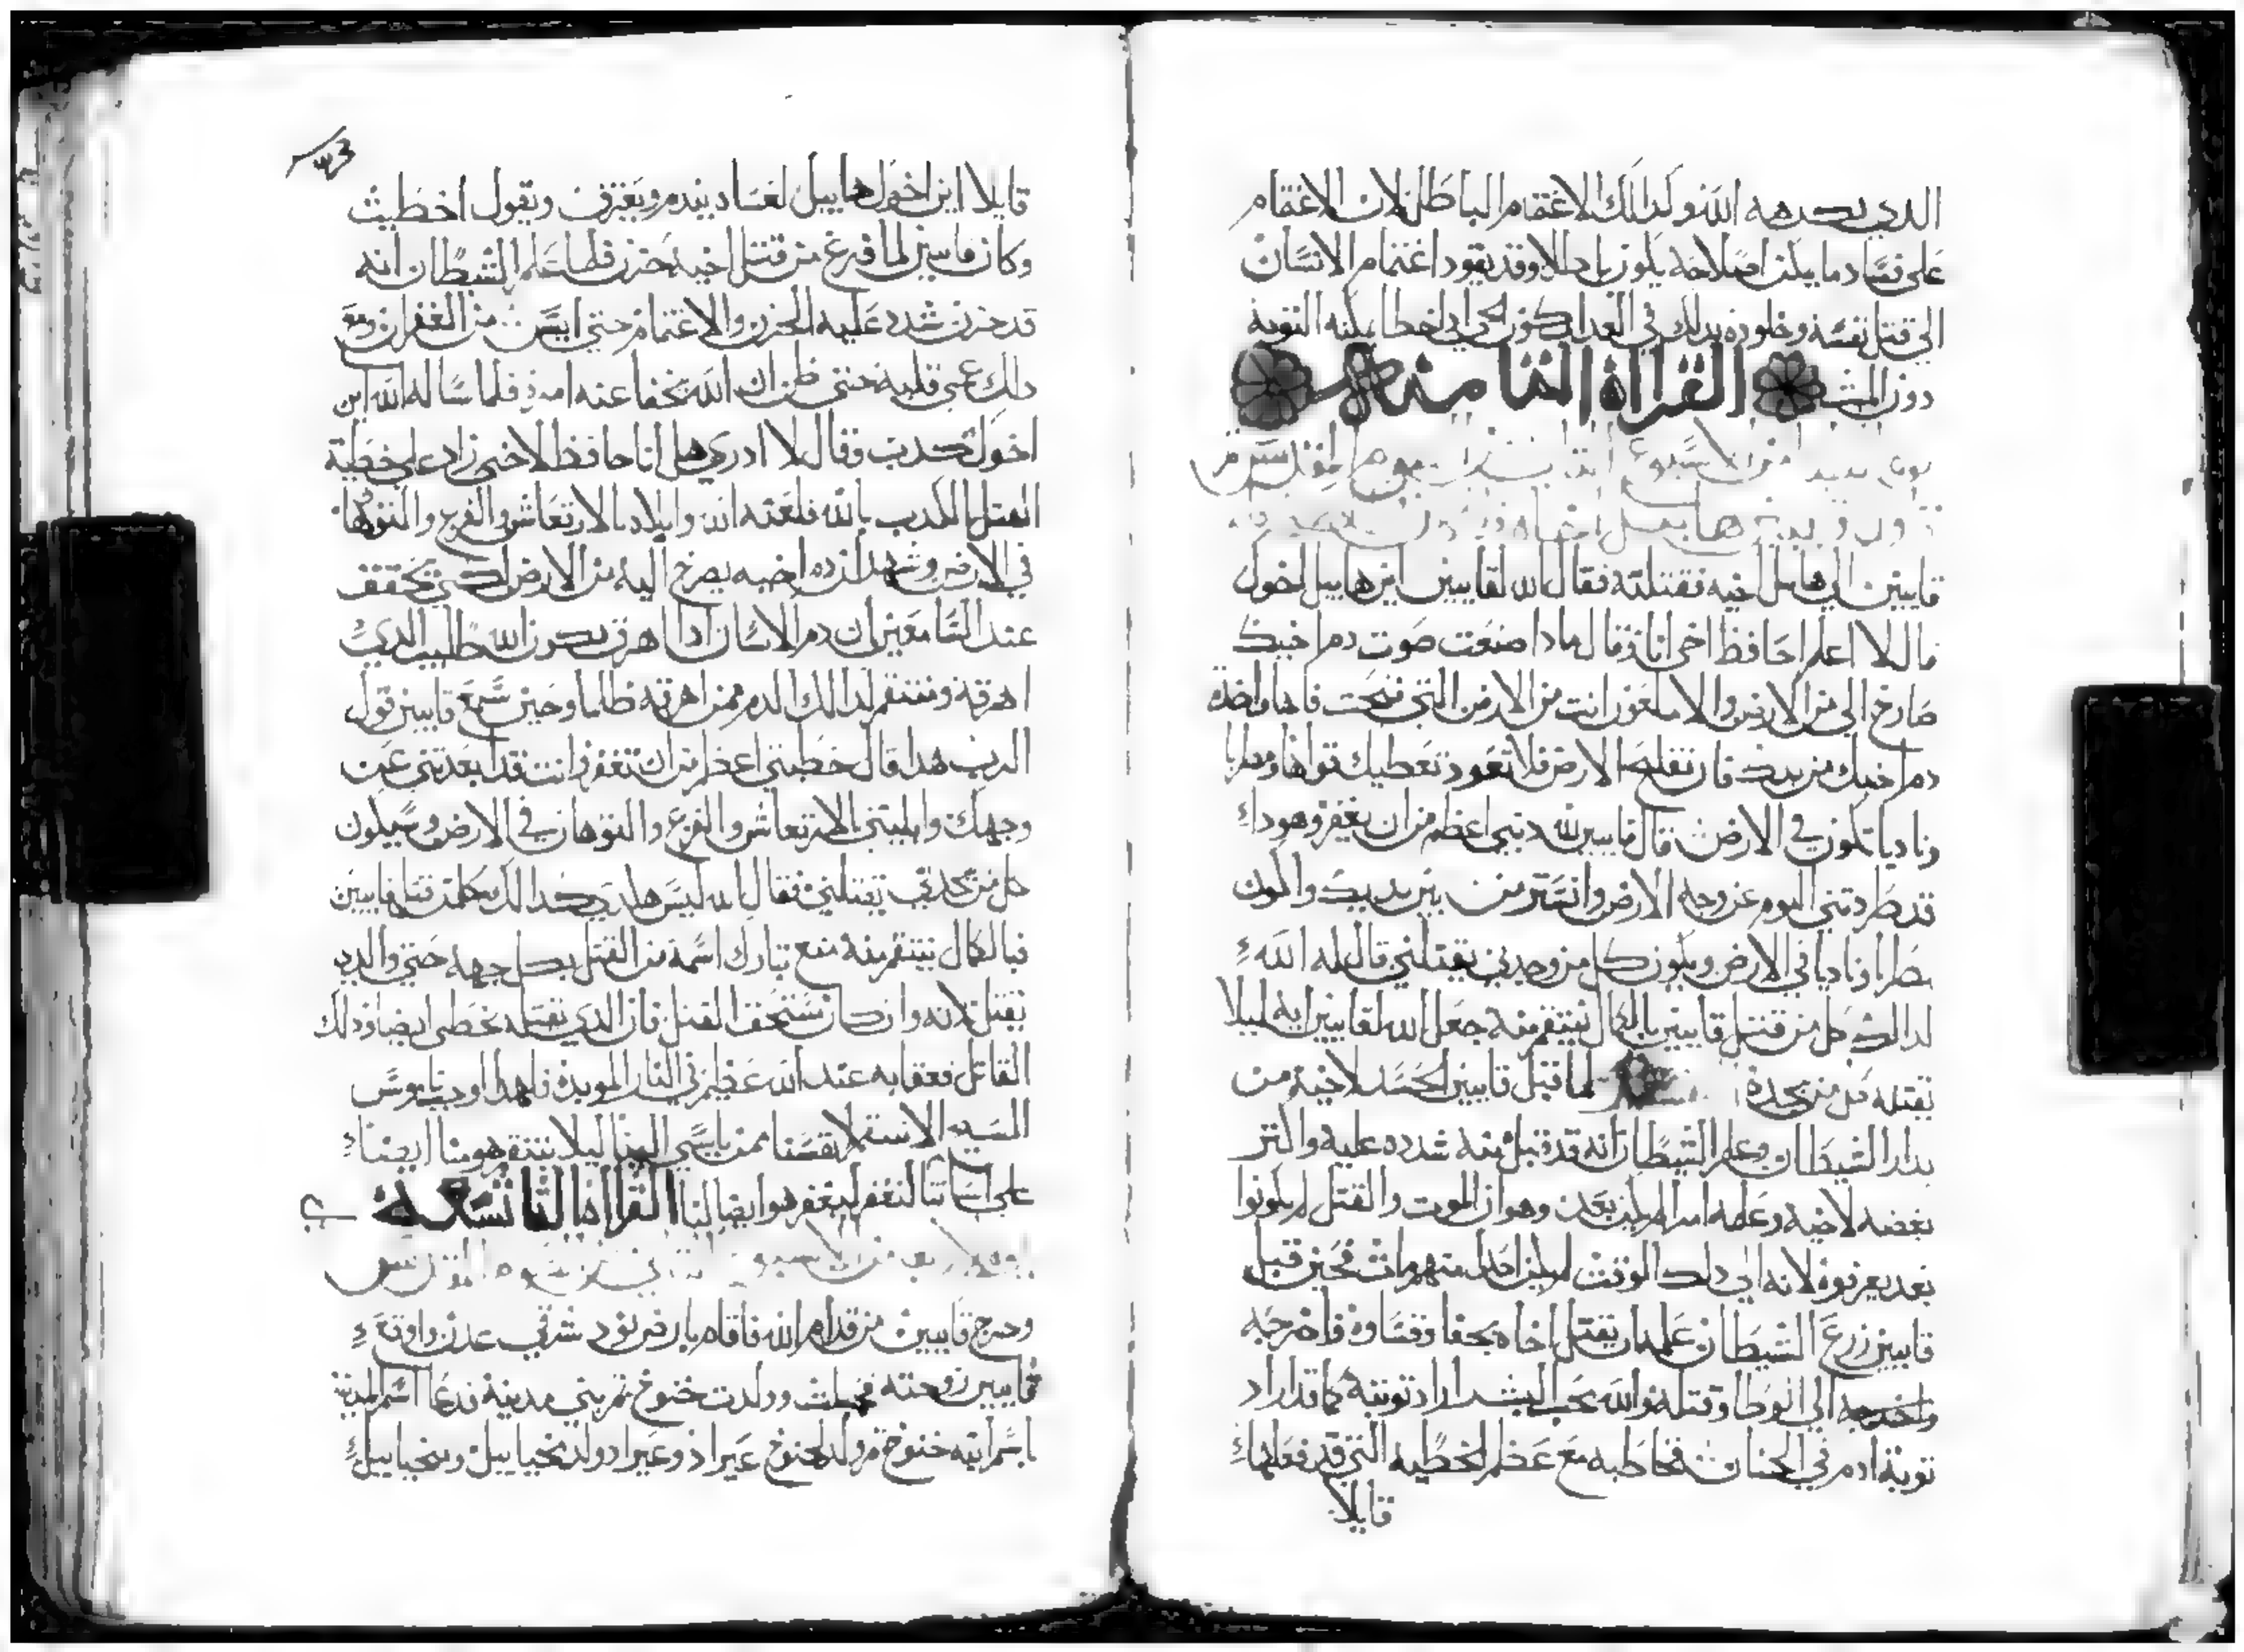 الدي يكرهه الله وكدالك الاغتمام الباطل لان الاغتمام
على فساد ما يمكن اصلاحه يكون باطلا وقد يقود اغتمام الانسان
الى قتل نفسه وخلوده بدلك في العداب كون الحي ادا اخطا يمكنه التوبة
دون الميت القرااة الثامنة
من الاسبوع
هابيل
قايين الي هابيل اخيه فقتلته فقال الله لقايين اين هابيل اخوك
قال لا اعلم احافظ اخي انا فقال مادا صنعت صوت دم اخيك
صارخ الي من الارض والان ملعون انت من الارض التي فتحت فاها واخدة
دم اخيك من يدك فان تفلح الارض فلا تعود تعطيك قواها ومطربا
وناديا تكون في الارض قال قايين لله دنبي اعظم من ان يغفر وهودا
قد طردتني اليوم عن وجه الارض وانستر من بين يديك واكون
مطربا وناديا في الارض ويكون كل من وجدني يقتلني قال له الله
لدالك كل من قتل قايين بالكمال ينتقم منه جعل الله لقايين اية ليلا
يقتله كل من يجده لما قبل قايين الحسد لاخيه من
بدار الشيطان وعلم الشيطان انه قد قبل منه شدده عليه واكتر
بغضه لاخيه وعلمه امرا لم يكن بعد وهو ان الموت والقتل لم يكونوا
بعد يعرفوه لانه الي دلك الوقت لم يكن احد منهم مات فحين قبل
قايين زرع الشيطان علمه ان يقتل اخاه بجفا وقساوة فاخرجه
واخرجه الي الوطا وقتله والله محب البشر اراد توبته كما قد اراد
توبة ادم في الجنان فخاطبه مع عظم الخطية التي قد فعلها
قايلا
قايلا اين اخوك هابيل لعساه يندم ويعترف ويقول اخطيت
وكان قايين لما فرغ من قتل اخيه حزن فلما علم الشيطان انه
قد حزن شدد عليه الحزن والاغتمام حتي ايس من الغفران ومع
دلك عمي قلبه حتى ظن ان الله يخفا عنه امره فلما ساله الله اين
اخوك كدب وقال لا ادري هل انا حافظ لاخي زاد على خطية
القتل بالكدب بالله فلعنه الله وابلاه بالارتعاش والفزع والتوهان
في الارض وشهد ان دم اخيه يصرخ اليه من الارض لكي يتحقق
عند السامعين ان دم الانسان ادا اهرق يكون الله طالب الدي
اهرقه وينتقم لدالك الدم ممن اهرقه ظلما وحين سمع قايين قول
الرب هدا قال خطيتي اعظم من ان تغفر انت قد ابعدتني عن
وجهك وابليتني بالارتعاش والفزع والتوهان في الارض وسيكون
كل من يجدني يقتلني فقال الله ليس هدا بل كدالك كلمن قتل قايين
فبالكمال ينتقم منه منع تبارك اسمه من القتل بكل جهة حتي والدي
يقتل لانه وان كان يستحق القتل فان الدي يقتله يخطي ايضا ودلك
القاتل فعقابه عند الله عظيم في النار الموبدة فلهدا اوجب ناموس
المسيح الا ننتقم لانفسنا ممن ياسي الينا ليلا ينتقم هو منا ايضا
على اساتنا لنغفر ليغفر هو ايضا لنا القراة التاسعة
من الاسبوع
وخرج قايين من قدام الله فاقام بارض نود شرقي عدن واوقع
قايين زوجته فحبلت وولدت خنوخ ثم بني مدينة فدعا اسم المدينة
باسم ابنه خنوخ ثم ولد لخنوخ عيراد وعيراد ولد مخياييل ومخياييل